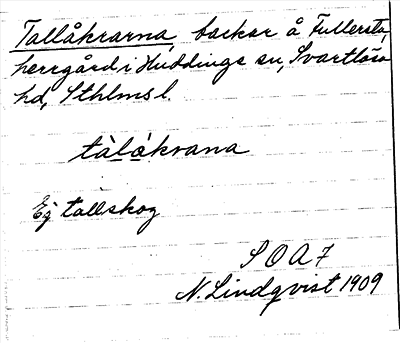 Tallåkrarna, backar å Fullersta,
herrgård i Huddinge sn, Svartlösa
hd, Sthlms l.
tàlå̀krana
Ej tallskog
S O A 7
N. Lindqvist 1909